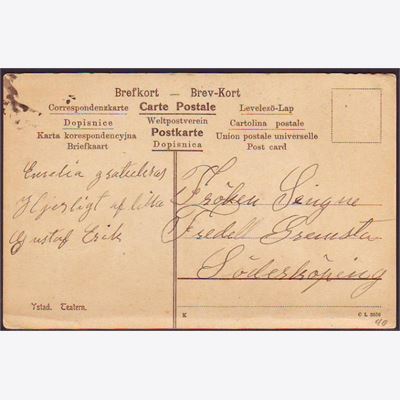 Brefkort — Brev-Kort
Correspondenzkarte Carte Postale Levelező-Lap
Dopisnice Weltpostverein Cartolina postale
Karta korespondencyjna Postkarte Union postale universelle
Briefkaart Dopisnica Post card
gratuleras
Hjertligt af lilla
Gustaf Erik
Fröken Signe
Fredell
Söderköping
Ystad. Teatern.
K
C L
40